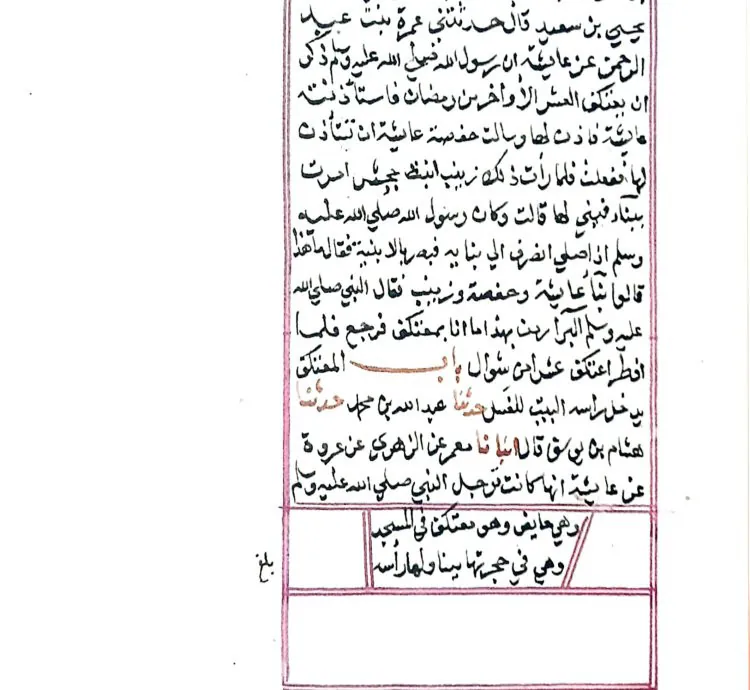 يحيى بن سعيد قال حدثتني عمرة بنت عبد
الرحمن عن عايشة ان رسول الله صلى الله عليه وسلم ذكر
ان يعتكف العشر الأواخر من رمضان فاستأذنته
عايشة فاذن لها وسالت حفصة عايشة ان تستأذن
لها ففعلت فلما رأت ذلك زينب ابنة جحش امرت
ببناء فبني لها قالت وكان رسول الله صلى الله عليه
وسلم اذا صلى انصرف الى بنايه فبصر بالابنية فقال ما هذا
قالوا بنأ عايشة وحفصة وزينب فقال النبي صلى الله
عليه وسلم آلبر اردن بهذا ما انا بمعتكف فرجع فلما
افطر اعتكف عشرا من شوال باب المعتكف
يدخل راسه البيت للغسل حدثنا عبد الله بن محمد حدثنا
هشام بن يوسف قال انبانا معمر عن الزهري عن عروة
عن عايشة انها كانت ترجل النبي صلى الله عليه وسلم
وهي حايض وهو معتكف في المسجد
وهي في حجرتها يناولها رأسه
بلغ